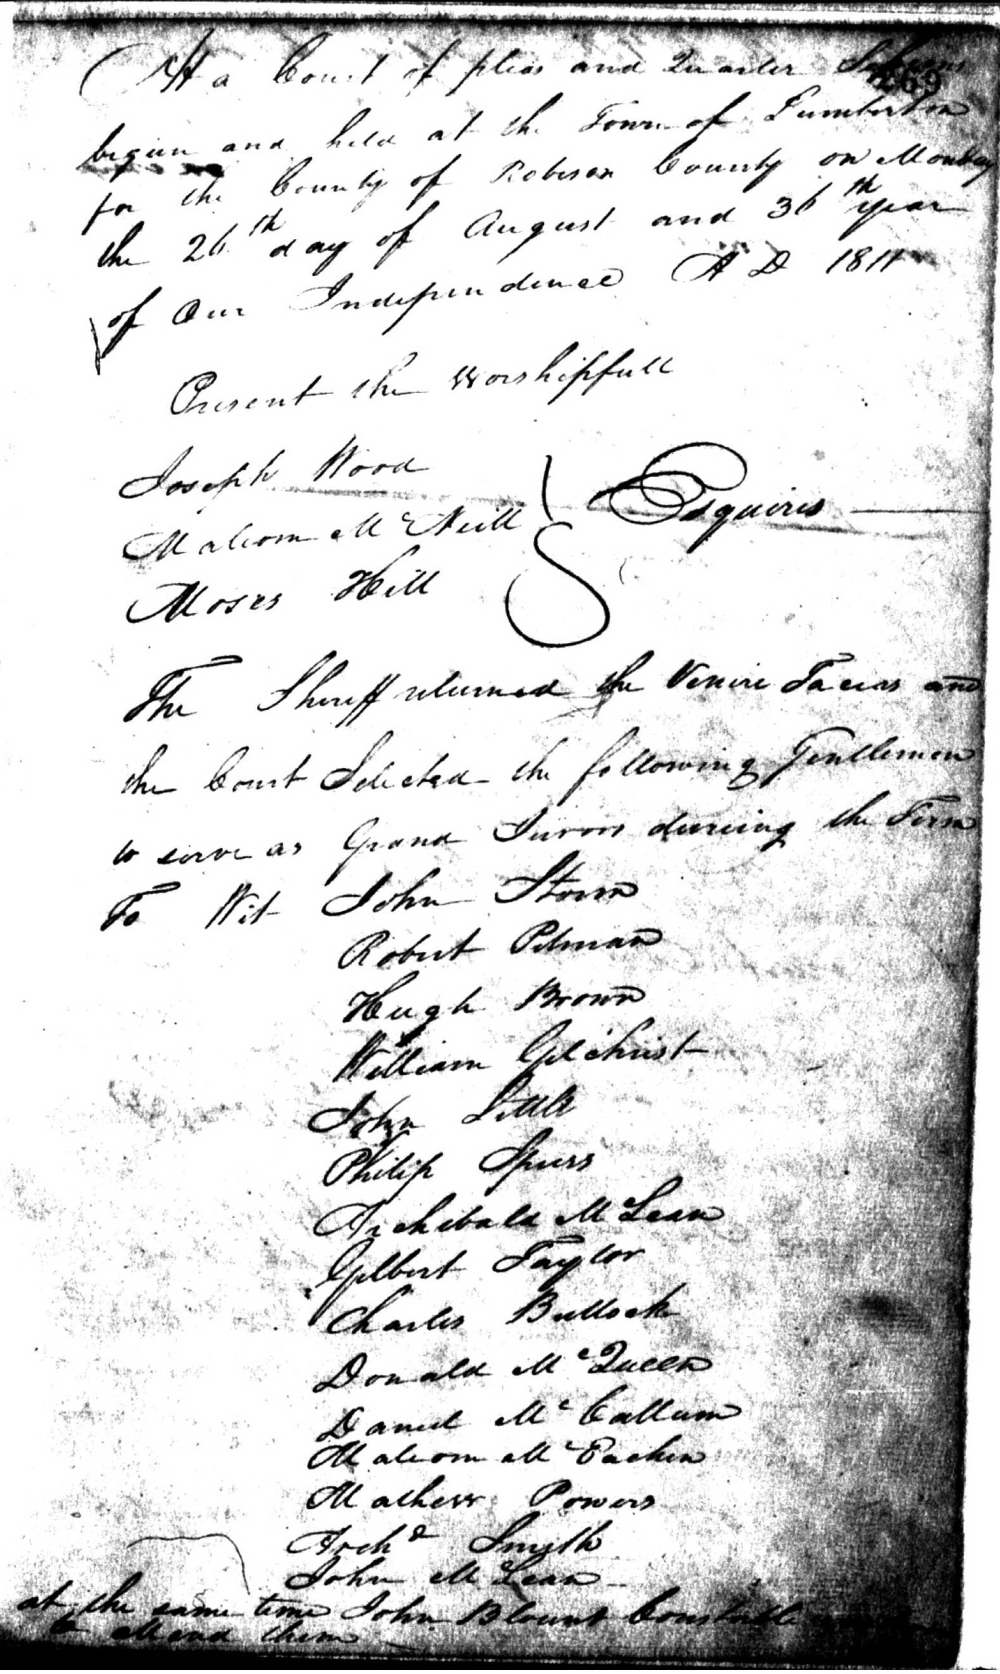 269
At a Court of pleas and Quarter Sessions
begun and held at the Town of Lumberton
for the County of Robeson County on Monday
the 26th day of August and 36th year
of Our Independence A D 1811
Present the Worshipfull
Joseph Wood
Malcom McNeill Esquires
Moses Hill
The Sheriff returned the Venire Facias and
the Court Selected the following Gentlemen
to serve as Grand Jurors dureing the Term
To Wit John Storm
Robert Pitman
Hugh Brown
William Gilchrist
John Little
Philip Spiers
Archibald McLean
Gilbert Taylor
Charles Bullock
Donald McQueen
Daniel McCallum
Malcom McEachin
Mathew Powers
Archd Smith
John McLean
at the same time John Blount Constable
to attend them